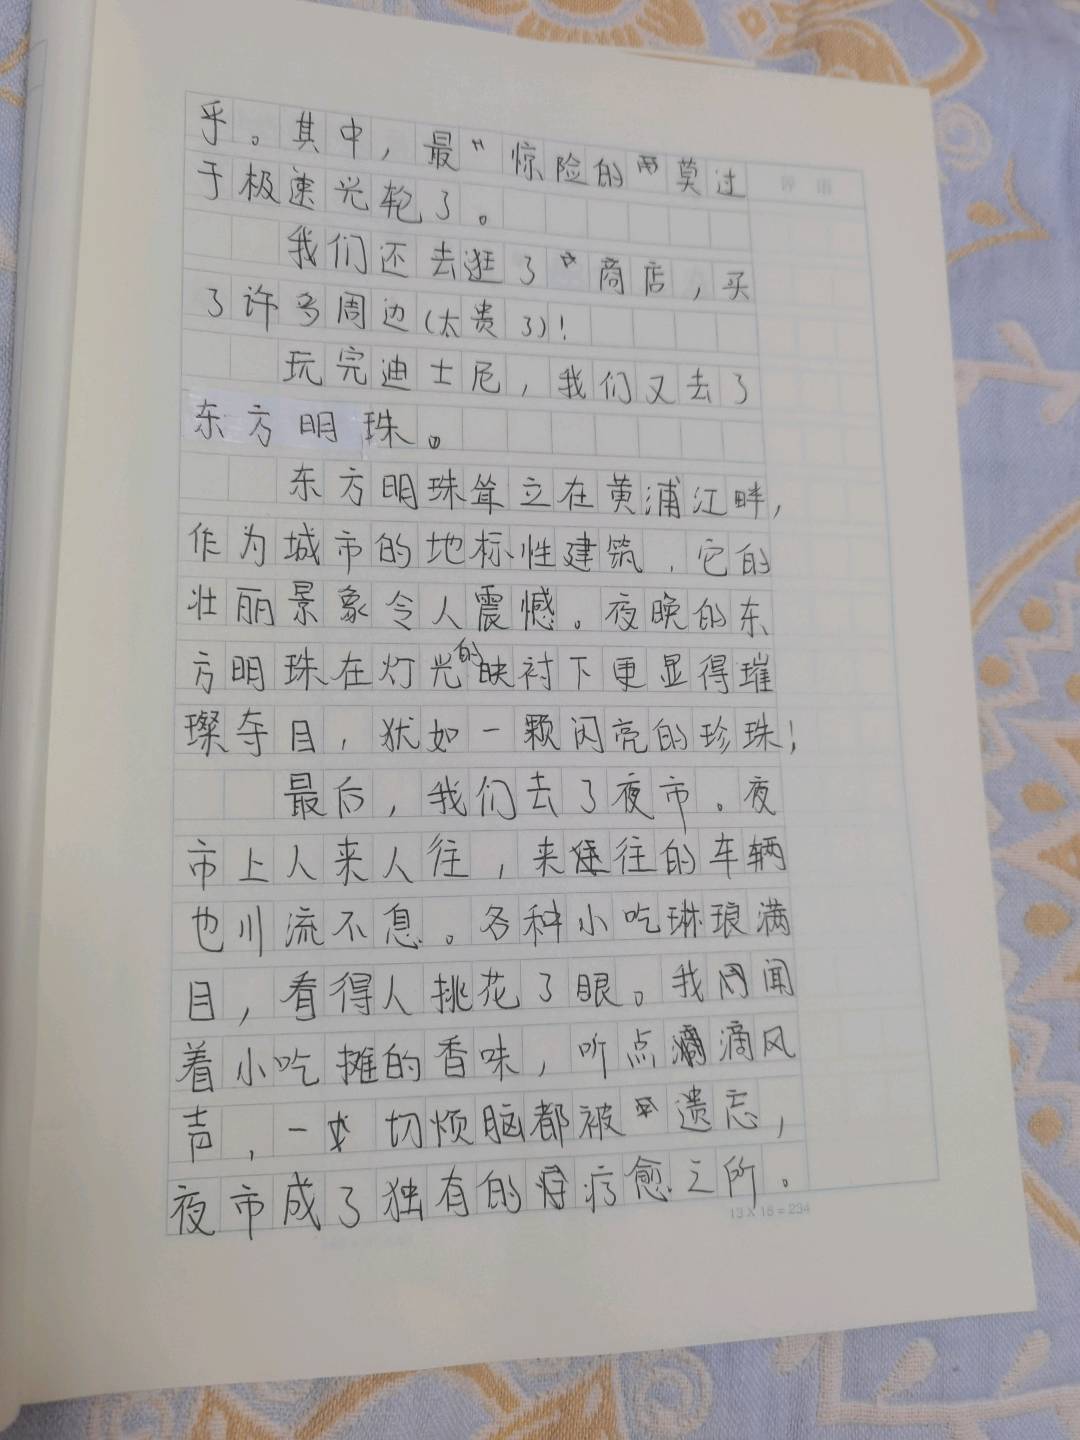 乎。其中，最“惊险的”莫过
于极速光轮了。
我们还去逛了商店，买
了许多周边(太贵了)!
玩完迪士尼，我们又去了
东方明珠。
东方明珠耸立在黄浦江畔，
作为城市的地标性建筑，它的
壮丽景象令人震憾。夜晚的东
方明珠在灯光的映衬下更显得璀
璨夺目，犹如一颗闪亮的珍珠!
最后，我们去了夜市。夜
市上人来人往，来往的车辆
也川流不息。各种小吃琳琅满
目，看得人挑花了眼。我闻
着小吃摊的香味，听点滴风
声，一切烦脑都被遗忘，
夜市成了独有的疗愈之所。
13×18=234